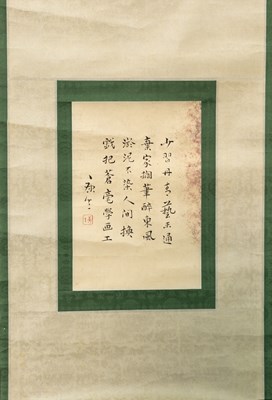 少習丹青藝未通
棄家搁筆醉東風
淤泥不染人间換
戲把蒼毫學画工